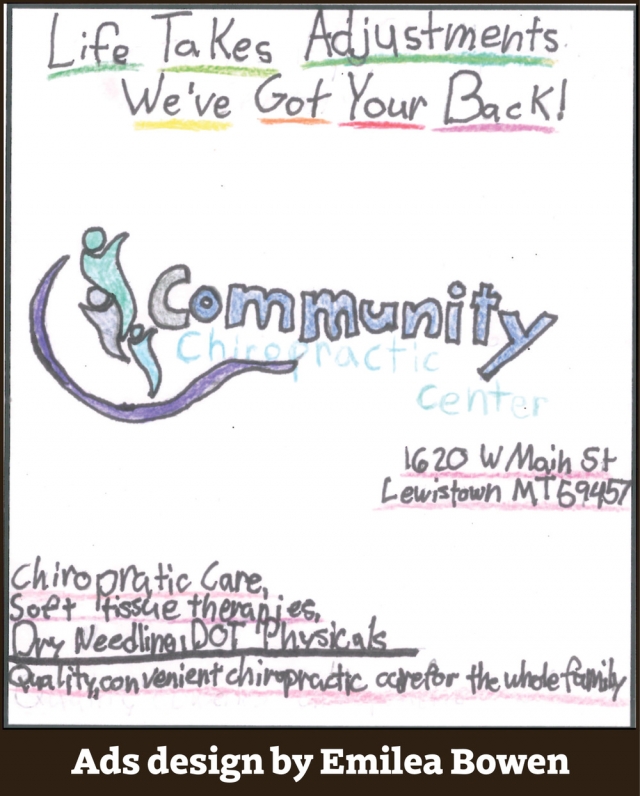 Life Takes Adjustments
We've Got Your Back!
Community
Chiropractic
Center
1620 W Main St
Lewistown MT 59457
Chiropratic Care,
Soft tissue therapies,
Dry Needling, DOT Physicals
Quality, convenient chiropractic care for the whole family
Ads design by Emilea Bowen